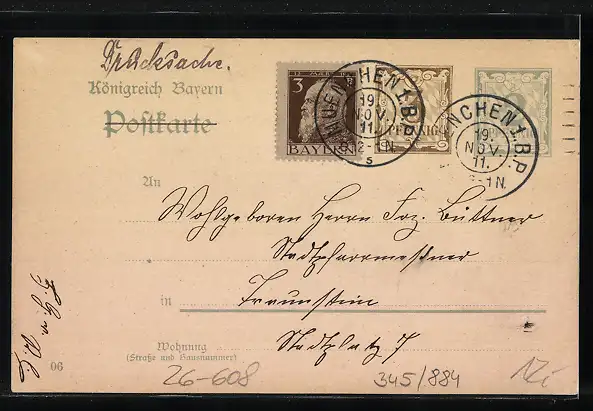 Drucksache.
Königreich Bayern
Postkarte
3
BAYERN
PFENNIG
MUENCHEN 1. B.P.
19.
NOV.
11.
12-1N.
s
ENCHEN 1. B.P.
19.
NOV.
11.
-1N.
An
Wohlgeboren Herrn Frz. Büttner
Stadtpfarrmeßner
in Traunstein
Stadtplatz 7
Wohnung
(Straße und Hausnummer)
06
26-608
345/884